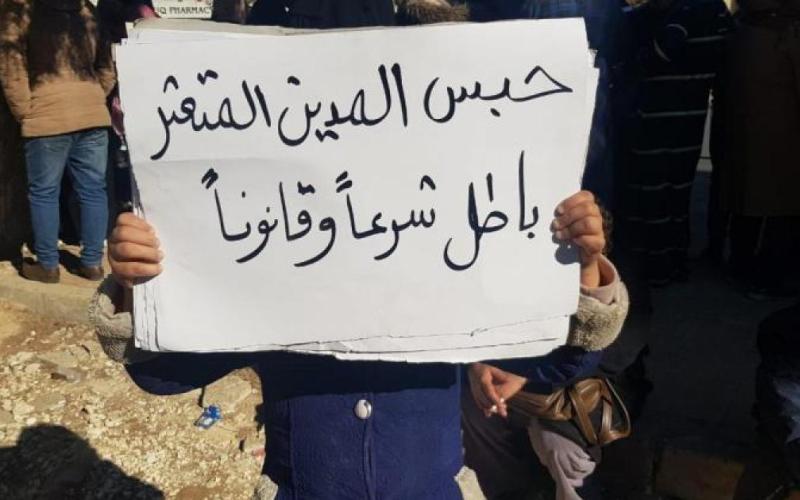 IQ PHARMACY
حبس المدين المتعثر
باطل شرعاً وقانوناً